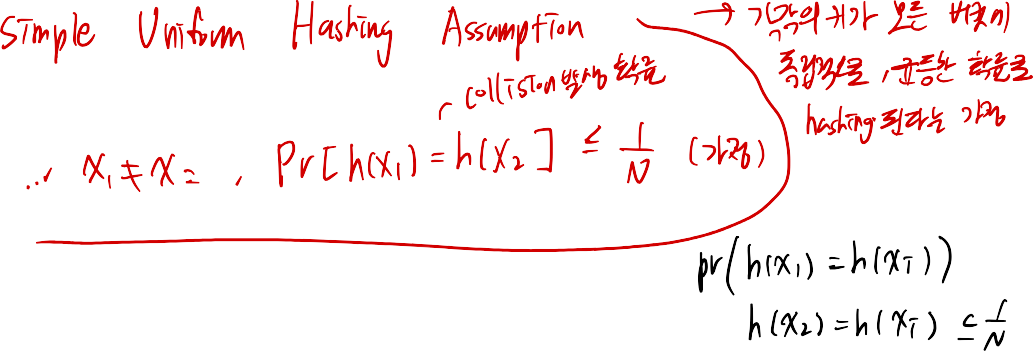 Simple Uniform Hashing Assumption
→ 각각의 키가 모든 버킷에
독립적으로, 균등한 확률로
hashing 된다는 가정
collision 발생 확률
... x₁ ≠ x₂ , Pr[h(x₁) = h(x₂)] ≤ 1/N (가정)
pr(h(x₁) = h(xᵢ))
h(x₂) = h(xᵢ) ≤ 1/N